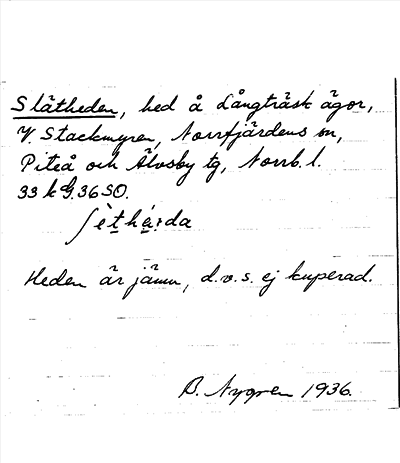 Slätheden, hed å Långträsk ägor,
V. Stackmyren, Norrfjärdens sn,
Piteå och Älvsby tg, Norrb. l.
33 k G. 36 SO.
Heden är jämn, d.v.s. ej kuperad.
B. Nygren 1936.